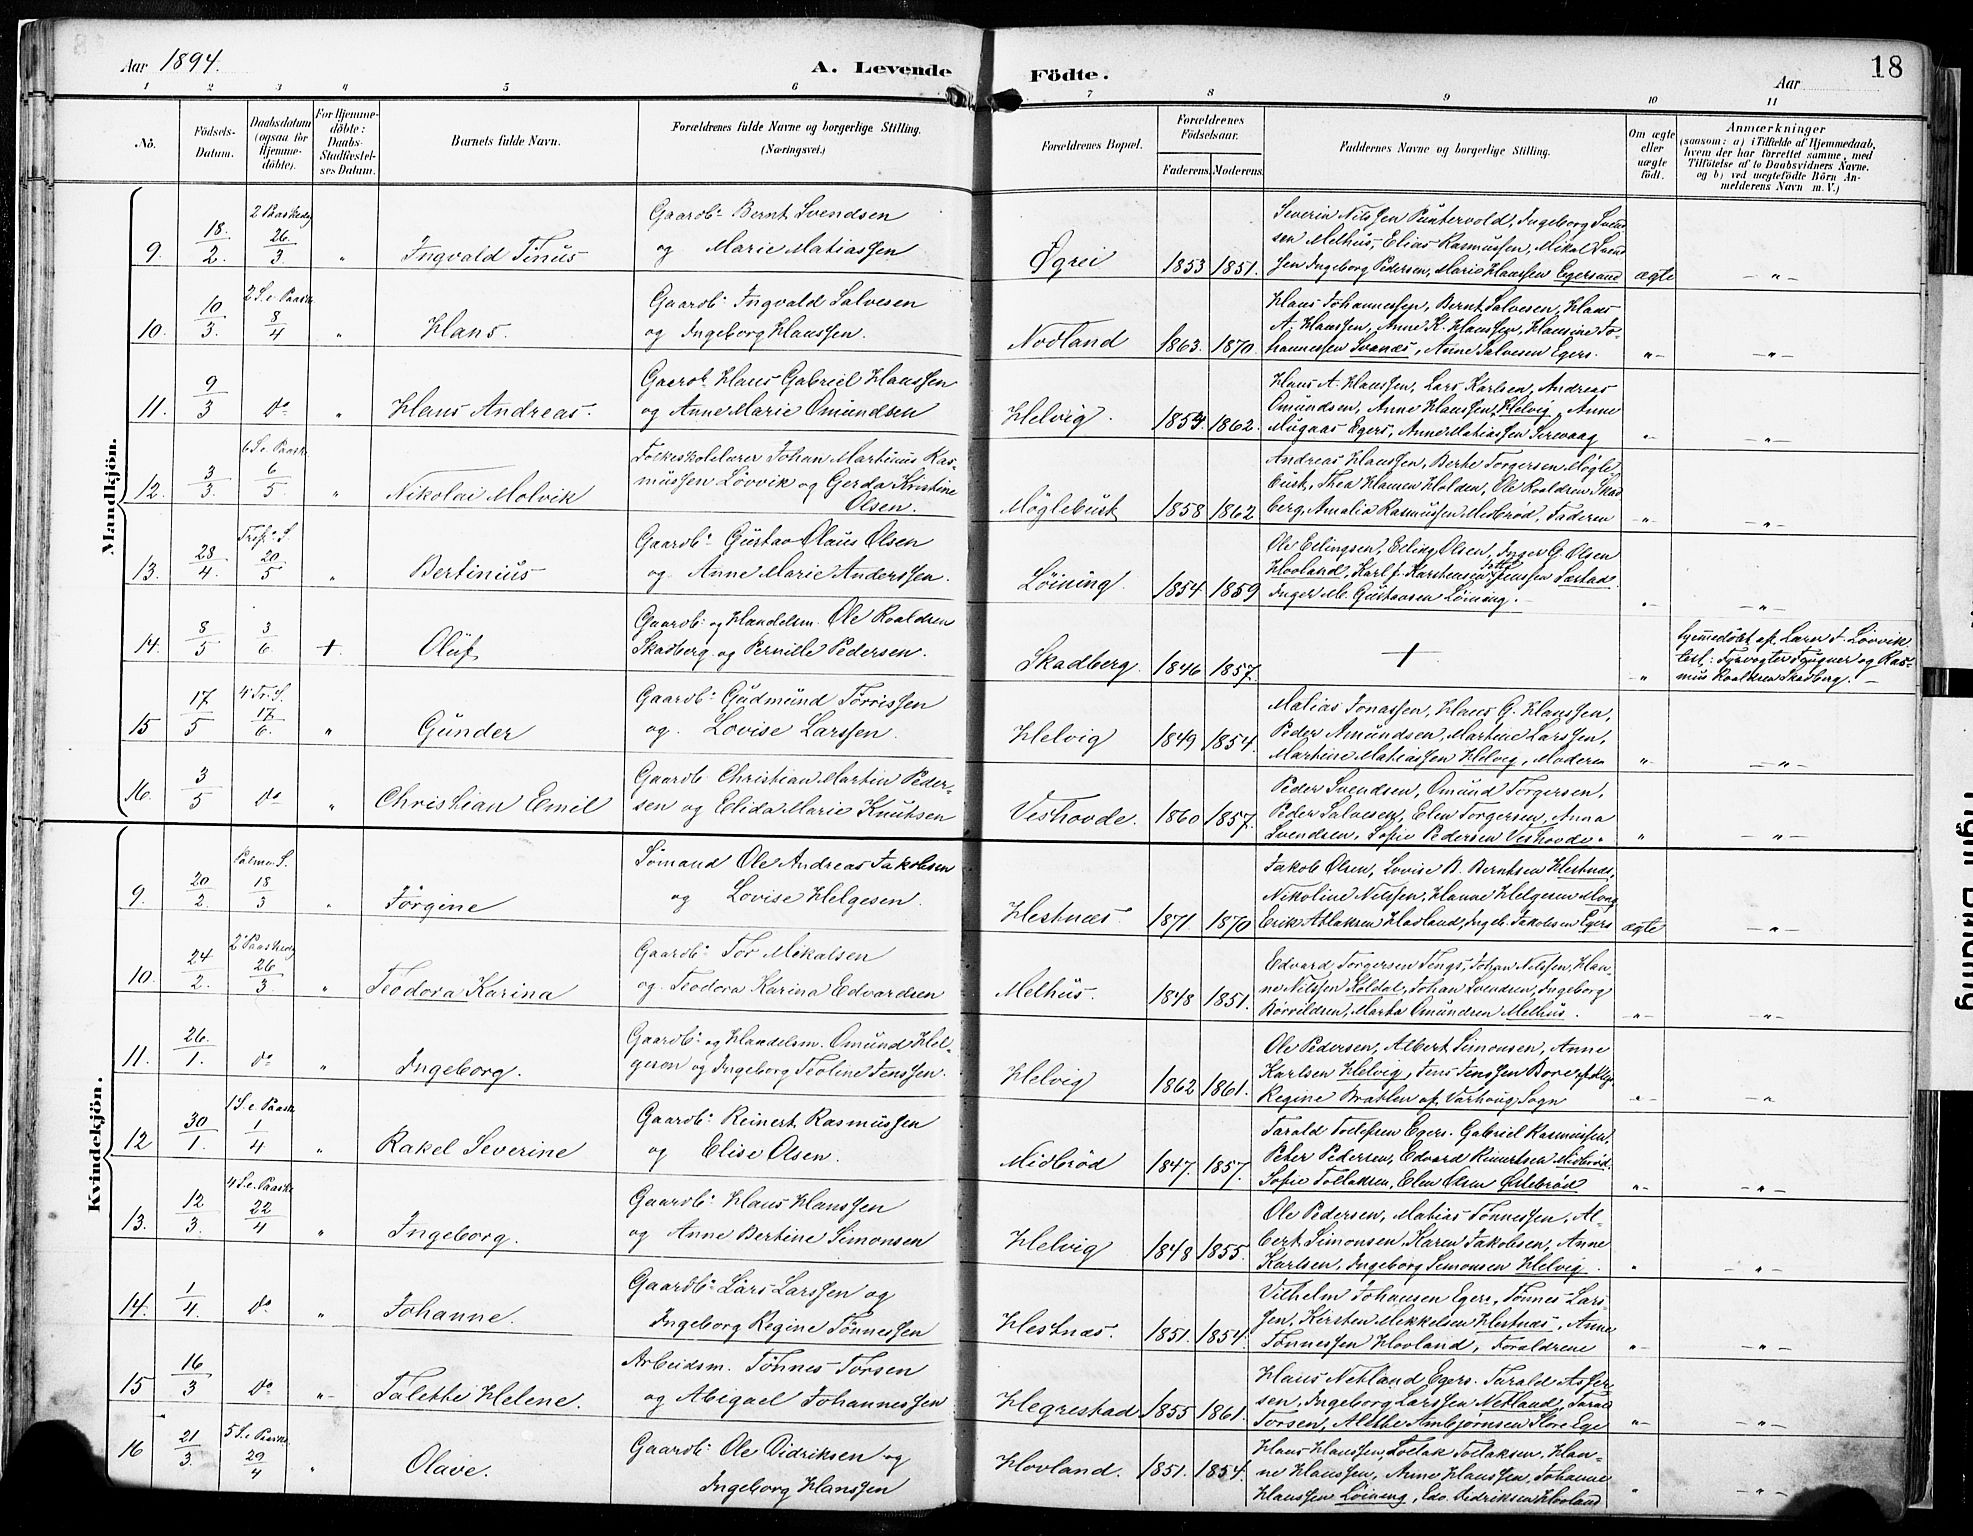 Aar 1894.
A. Levende Födte.
Aar
18
1 2 3 4 5 6 7 8 9 10 11
No.
Födsels-Datum.
Daabsdatum (ogsaa for Hjemme-döbte).
For Hjemme-döbte: Daabs-Stadfæstel-ses Datum.
Barnets fulde Navn.
Forældrenes fulde Navne og borgerlige Stilling.
(Næringsvei.)
Forældrenes Bopæl.
Forældrenes Födselsaar.
Faderens. Moderens.
Faddernes Navne og borgerlige Stilling.
Om ægte eller uægte födt.
Anmærkninger
(saasom: a) i Tilfælde af Hjemmedaab,
hvem der har forrettet samme, med
Tilföielse af to Daabsvidners Navne.
og b) ved uægtefödte Börn An-
melderens Navn m. V.)
Mandkjön.
9. 18/2. 2 Paaskedg 26/3. " Ingvald Tinus
Gaardbr. Bernt Svendsen
og Marie Matiassen
Øgrei 1853 1851.
Severin Nilssen Puntervold, Ingeborg Svend
sen Melhus, Elias Rasmussen, Mikal Svend
sen Ingeborg Pedersen, Marie Hanssen Egersund
ægte -"-
10. 10/3. 2 S. e. Paaske 8/4 " Hans.
Gaardbr. Ingvald Salvesen
og Ingeborg Hanssen.
Nodland 1863. 1870.
Hans Johannessen, Bernt Salvesen, Hans
A. Hanssen, Anne K. Hanssen, Hansine Jo-
hannessen Svanæs, Anne Salvesen Egers.
"- -"-
11. 9/3 do " Hans Andreas.
Gaardbr. Hans Gabriel Hanssen
og Anne Marie Omundsen
Helvig. 1854. 1862.
Hans A. Hanssen, Lars Karlsen, Andreas
Omundsen, Anne Hanssen, Helvig, Anne
Mugaas Egers, Anne Matiassen Sirevaag
"- -"-
12. 3/3. 6 S. e. Paaske 6/5. " Nikolai Molvik
Folkeskolelærer Johan Martinus Ras-
mussen Lövvik og Gerda Kristine
Olsen.
Möglebust 1858 1862
Andreas Hanssen, Berte Torgersen Mögle-
bust, Thea Hansen Holden, Ole Roaldsen Skad
berg, Amalia Rasmussen Midbröd, Faderen
"- "-
13. 28/4. Tref. S. 20/5 " Bertinius
Gaardbr. Gustav Olaus Olsen
og Anne Marie Anderssen.
Löining. 1854 1859
Ole Erlingsen, Erling Olsen, Inger G. Olsen
Hovland, Karl J. Karstensen, Jenssen Sæstad
Inger M. Gustavsen Löining.
"- -"-
14. 8/5 3/6 +. Oluf
Gaardbr. og Handelsm. Ole Roaldsen
Skadberg og Pernille Pedersen.
Skadberg. 1846 1857.
+
"-
hjemmedöbt af Lærer J. Lövvik
Test: Fyrvogter Fougner og Ras-
mus Roaldsen Skadberg.
15 17/5 4 Tr. S. 17/6. " Gunder
Gaardbr. Gudmund Torrissen
og. Lovise Larssen.
Helvig 1849 1854.
Matias Jonassen, Hans G. Hanssen,
Peder Amundsen, Martine Larssen,
Martine Matiassen Helvig, Moderen
"- -"-
16. 3/5 do " Christian Emil
Gaardb. Christian Martin Peder-
sen og Elida Marie Knutsen
Veshovde. 1860 1857.
Peder Svendsen, Omund Torgersen,
Peder Salvesen, Elen Torgersen, Anna
Svendsen, Sofie Pedersen Veshovde.
" -"-
Kvindekjön.
9. 20/2. Palme S. 18/3 " Jörgine
Sömand Ole Andreas Jakobsen
og Lovise Helgesen.
Hestnæs 1871. 1870
Jakob Olsen, Lovise B. Berntsen Hestnæs,
Nikoline Nilssen, Hanne Helgesen Mong
Erik Aslaksen Hovland, Ingeb. Jakobsen Egers
ægte -"-
10. 24/2. 2 Paaskedg 26/3 " Teodora Karina
Gaardbr. Tor Mikalsen
og Teodora Karina Edvardsen
Melhus. 1848 1851.
Edvard Torgersen Tengs, Johan Nilssen, Han-
ne Nilssen Koldal, Johan Svendsen, Ingeborg
Börrildsen, Marta Omundsen Melhus.
"- "-
11. 26/1. do " Ingeborg.
Gaardbr. og Handelsm. Omund Hel-
geson og Ingeborg Teoline Jenssen.
Helvig 1862 1861.
Ole Pedersen, Albert Simonsen, Anne
Karlsen Helvig, Jens Jenssen Bore af Klep
Regine Bratlen af Varhoug Sogn
"- "
12 30/1. 1 S. e. Paaske 1/4 " Rakel Severine
Gaardbr. Reinert Rasmussen
og Elise Olsen.
Midbröd 1847. 1857.
Tarald Tollefsen Egers. Gabriel Rasmussen,
Peter Pedersen, Edvard Reinertsen Midbröd.
Sofie Tollaksen, Elen Olsen Östebröd
"- -"-
13. 12/3. 4 S. e. Paaske 22/4 " Ingeborg.
Gaardbr. Hans Hanssen
og Anne Bertine Simonsen
Helvig 1848 1855.
Ole Pedersen, Matias Tönnessen, Al-
bert Simonsen, Karen Jakobsen, Anne
Karlsen, Ingeborg Simonsen Helvig.
" -"-
14. 1/4. do " Johanne.
Gaardbr. Lars Larssen og
Ingeborg Regine Tönnessen
Hestnæs. 1851. 1854.
Vilhelm Johansen Egers, Tönnes Lars-
sen, Kirsten Mikkelsen Hestnæs, Anne
Tönnessen Hovland, Forældrene
"- -"-
15 16/3 do "- Talette Helene.
Arbeidsm. Tönnes Torsen
og Abigael Johannessen
Hegrestad 1855 1861.
Hans Netland Egers. Tarald Asser-
sen, Ingeborg Larssen Netland, Tarald
Torsen, Alethe Ambjørnsen Flore Ege
"- -"-
16 21/3. 5 S. e. Paaske 29/4 " Olave.
Gaardbr. Ole Didriksen og
Ingeborg Hanssen
Hovland. 1851. 1854.
Hans Hanssen, Tollak Tollaksen, Han-
ne Hanssen, Anne Hanssen, Johanne
Hanssen Löining, Edv. Didriksen Hovland
" -"-